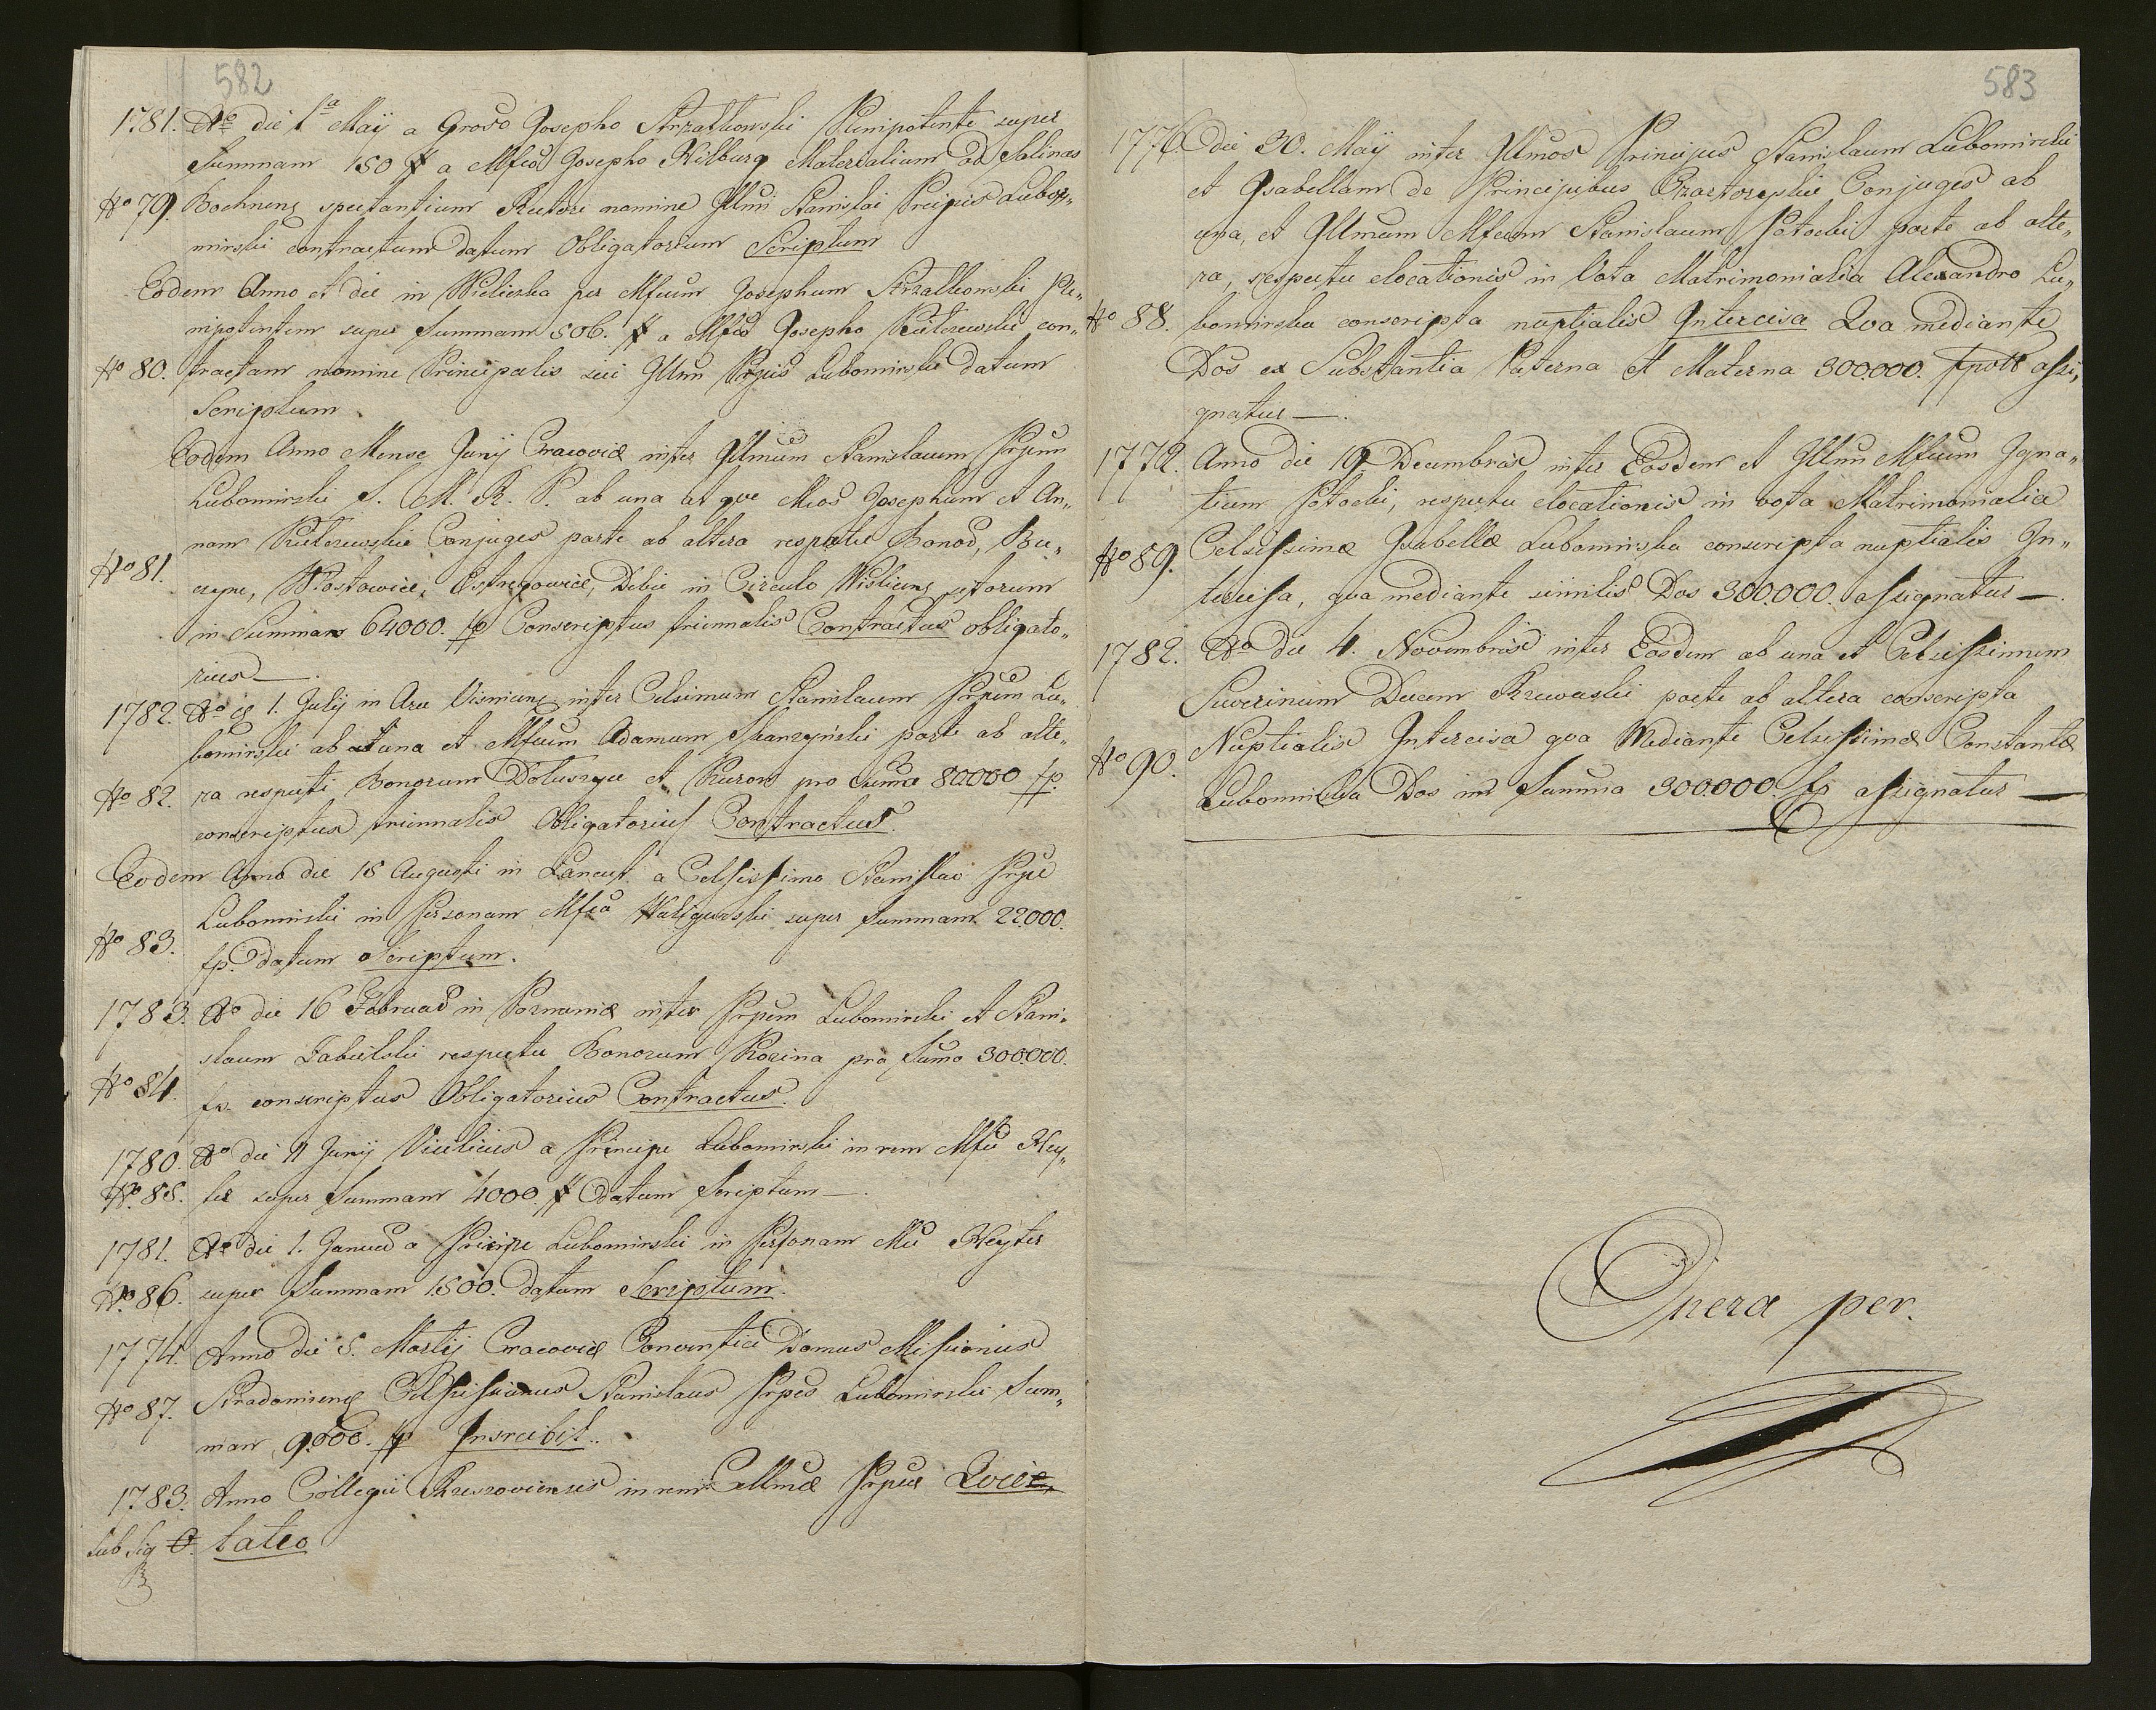 582
1781. Ao die 1a Maij a Groso Josepho Strzałkowski Plenipotente super
Summam 150 # a Mfco Josepho Kilburg Materialium ad Salinas
No 79. Bochneng spectantium Rectori nomine Illmi Stanislai Prcipis Lubo-
mirski contractum datum Obligatorium Scriptum
Eodem Anno et die in Wieliczka per Mfcum Josephum Strzałkowski Ple-
nipotentem super Summam 506. # a Mfco Josepho con-
No 80. tractam nomine Principalis sui Illmi Prpis Lubomirski datum
Scriptum.
Eodem Anno Mense Junij Cracoviæ inter Illmum Stanislaum Prpem
Lubomirski S. M. R. P. ab una at que Mcos Josephum et An-
nam Conjuges parte ab altera respectu Bonor, Bu-
No 81. czyne, Wrostowice, Ostregowice, Debie in Circulo Wisliceng sitorum
in Summam 64000. fp Conscriptus triennalis Contractus obligato-
rius —.
1782. Ao 1. Julij in Arce Visniceng inter Celsimum Stanislaum Prpem Lu-
bomirski ab una et Mfcum Adamum Skarzyński parte ab alte-
No 82. ra respectu Bonorum Dołuszyce et Kurow pro suma 80.000 fp.
conscriptus triennalis Obligatorius Contractus.
Eodem Anno die 18 Augusti in Lancut a Celsissimo Stanislao Prpe
Lubomirski in Personam Mfci Waligurski super Summam 22.000.
No 83. fp. datum Scriptum.
1783. Ao die 16 Februar in Poznaniæ inter Prpem Lubomirski et Stani-
slaum respectu Bonorum Rozina pro Suma 300.000.
No 84. fp. conscriptus Obligatorius Contractus.
1780. Ao die 11 Junij a Principe Lubomirski in rem Mfci Rey-
No. 85. ter super Summam 4000. # datum Scriptum —.
1781. Ao die 1. Januar a Principe Lubomirski in Personam Mci Reyter
No. 86. super Summam 1500. datum Scriptum.
1774. Anno die 5. Martij Cracoviæ Conventui Domus Missionis
No 87. Stradomieng Celsissimus Stanislaus Prpes Lubomirski Sum-
mam 9.000. fp Inscribit.
1783. Anno Collegii Rzeszoviensis in rem Prpis Quie-
Sub Sig tatio
583
1776. die 30. Maij inter Illmos Principes Stanislaum Lubomirski
et Isabellam de Principibus Czartoryskie Conjuges ab
una, et Illmum Mfcum Stanislaum Potocki parte ab alte-
ra, respectu elocationis in Vota Matrimonialia Alexandro Lu-
No 88. bomirska conscripta nuptialis Intercisa Qva mediante
Dos ex Substantia Paterna et Materna 300.000. fpoll assi-
gnatur —.
1772. Anno die 19. Decembris inter Eosdem et Illmum Mfcum Igna-
tium Potocki, respectu elocationis in vota Matrimonialia
No 89. Celsissimæ Isabellæ Lubomirska conscripta nuptialis In-
tercisa, qva mediante similis Dos 300.000. assignatur —.
1782. Ao die 4. Novembris inter Eosdem ab una et Celsissimum
Severinum Ducem Rzewuski parte ab altera conscripta
No 90. Nuptialis Intercisa qva Mediante Celsissimæ Constantæ
Lubomirska Dos in Summa 300.000. fp assignatur —
Opera per.